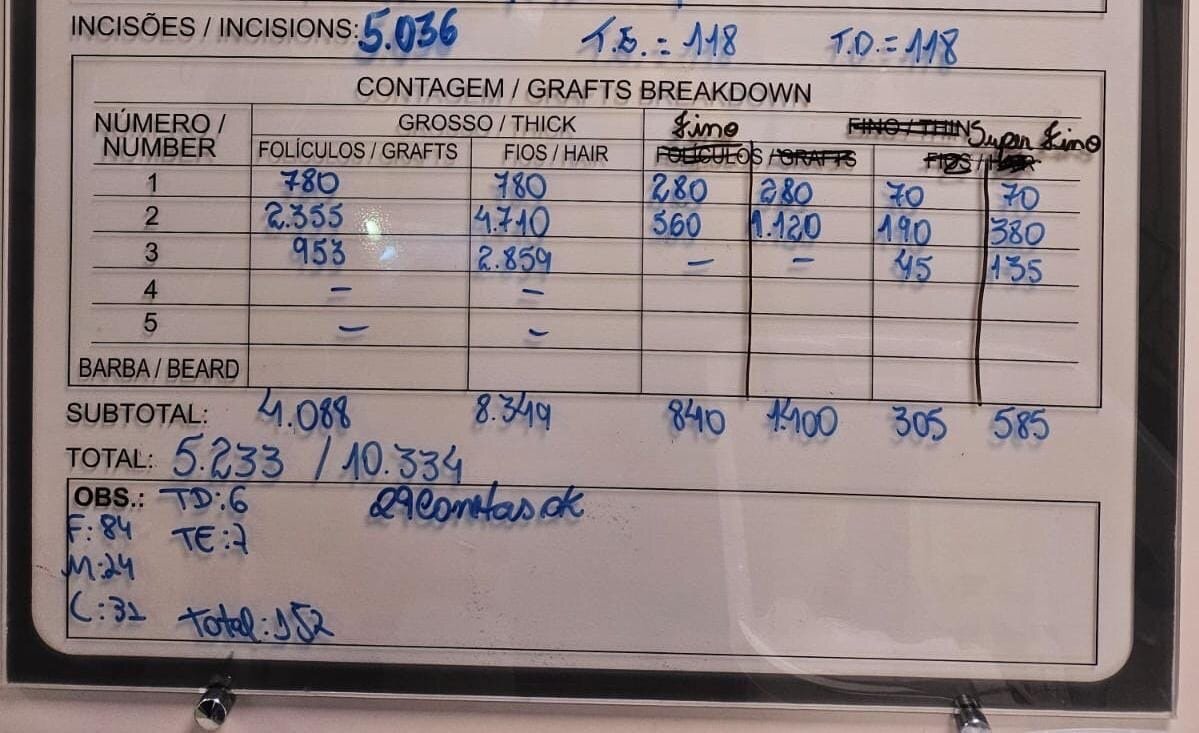 INCISÕES / INCISIONS: 5.036 T.E. = 118 T.D. = 118
CONTAGEM / GRAFTS BREAKDOWN
NÚMERO / NUMBER GROSSO / THICK Fino FINO / THIN Super Fino
FOLÍCULOS / GRAFTS FIOS / HAIR FOLÍCULOS / GRAFTS FIOS / HAIR
1 780 780 280 280 70 70
2 2.355 4.710 560 1.120 190 380
3 953 2.859 – – 45 135
4 – –
5 – –
BARBA / BEARD
SUBTOTAL: 4.088 8.349 840 1.400 305 585
TOTAL: 5.233 / 10.334
OBS.: TD:6 29 Contas ok
F: 84 TE:7
M:24
C:31 Total:152